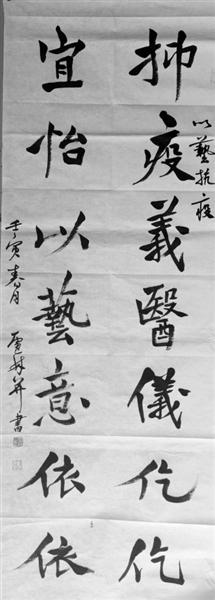 以藝抗疫
抑疫義醫儀仡仡
宜怡以藝意依依
壬寅春月 并書